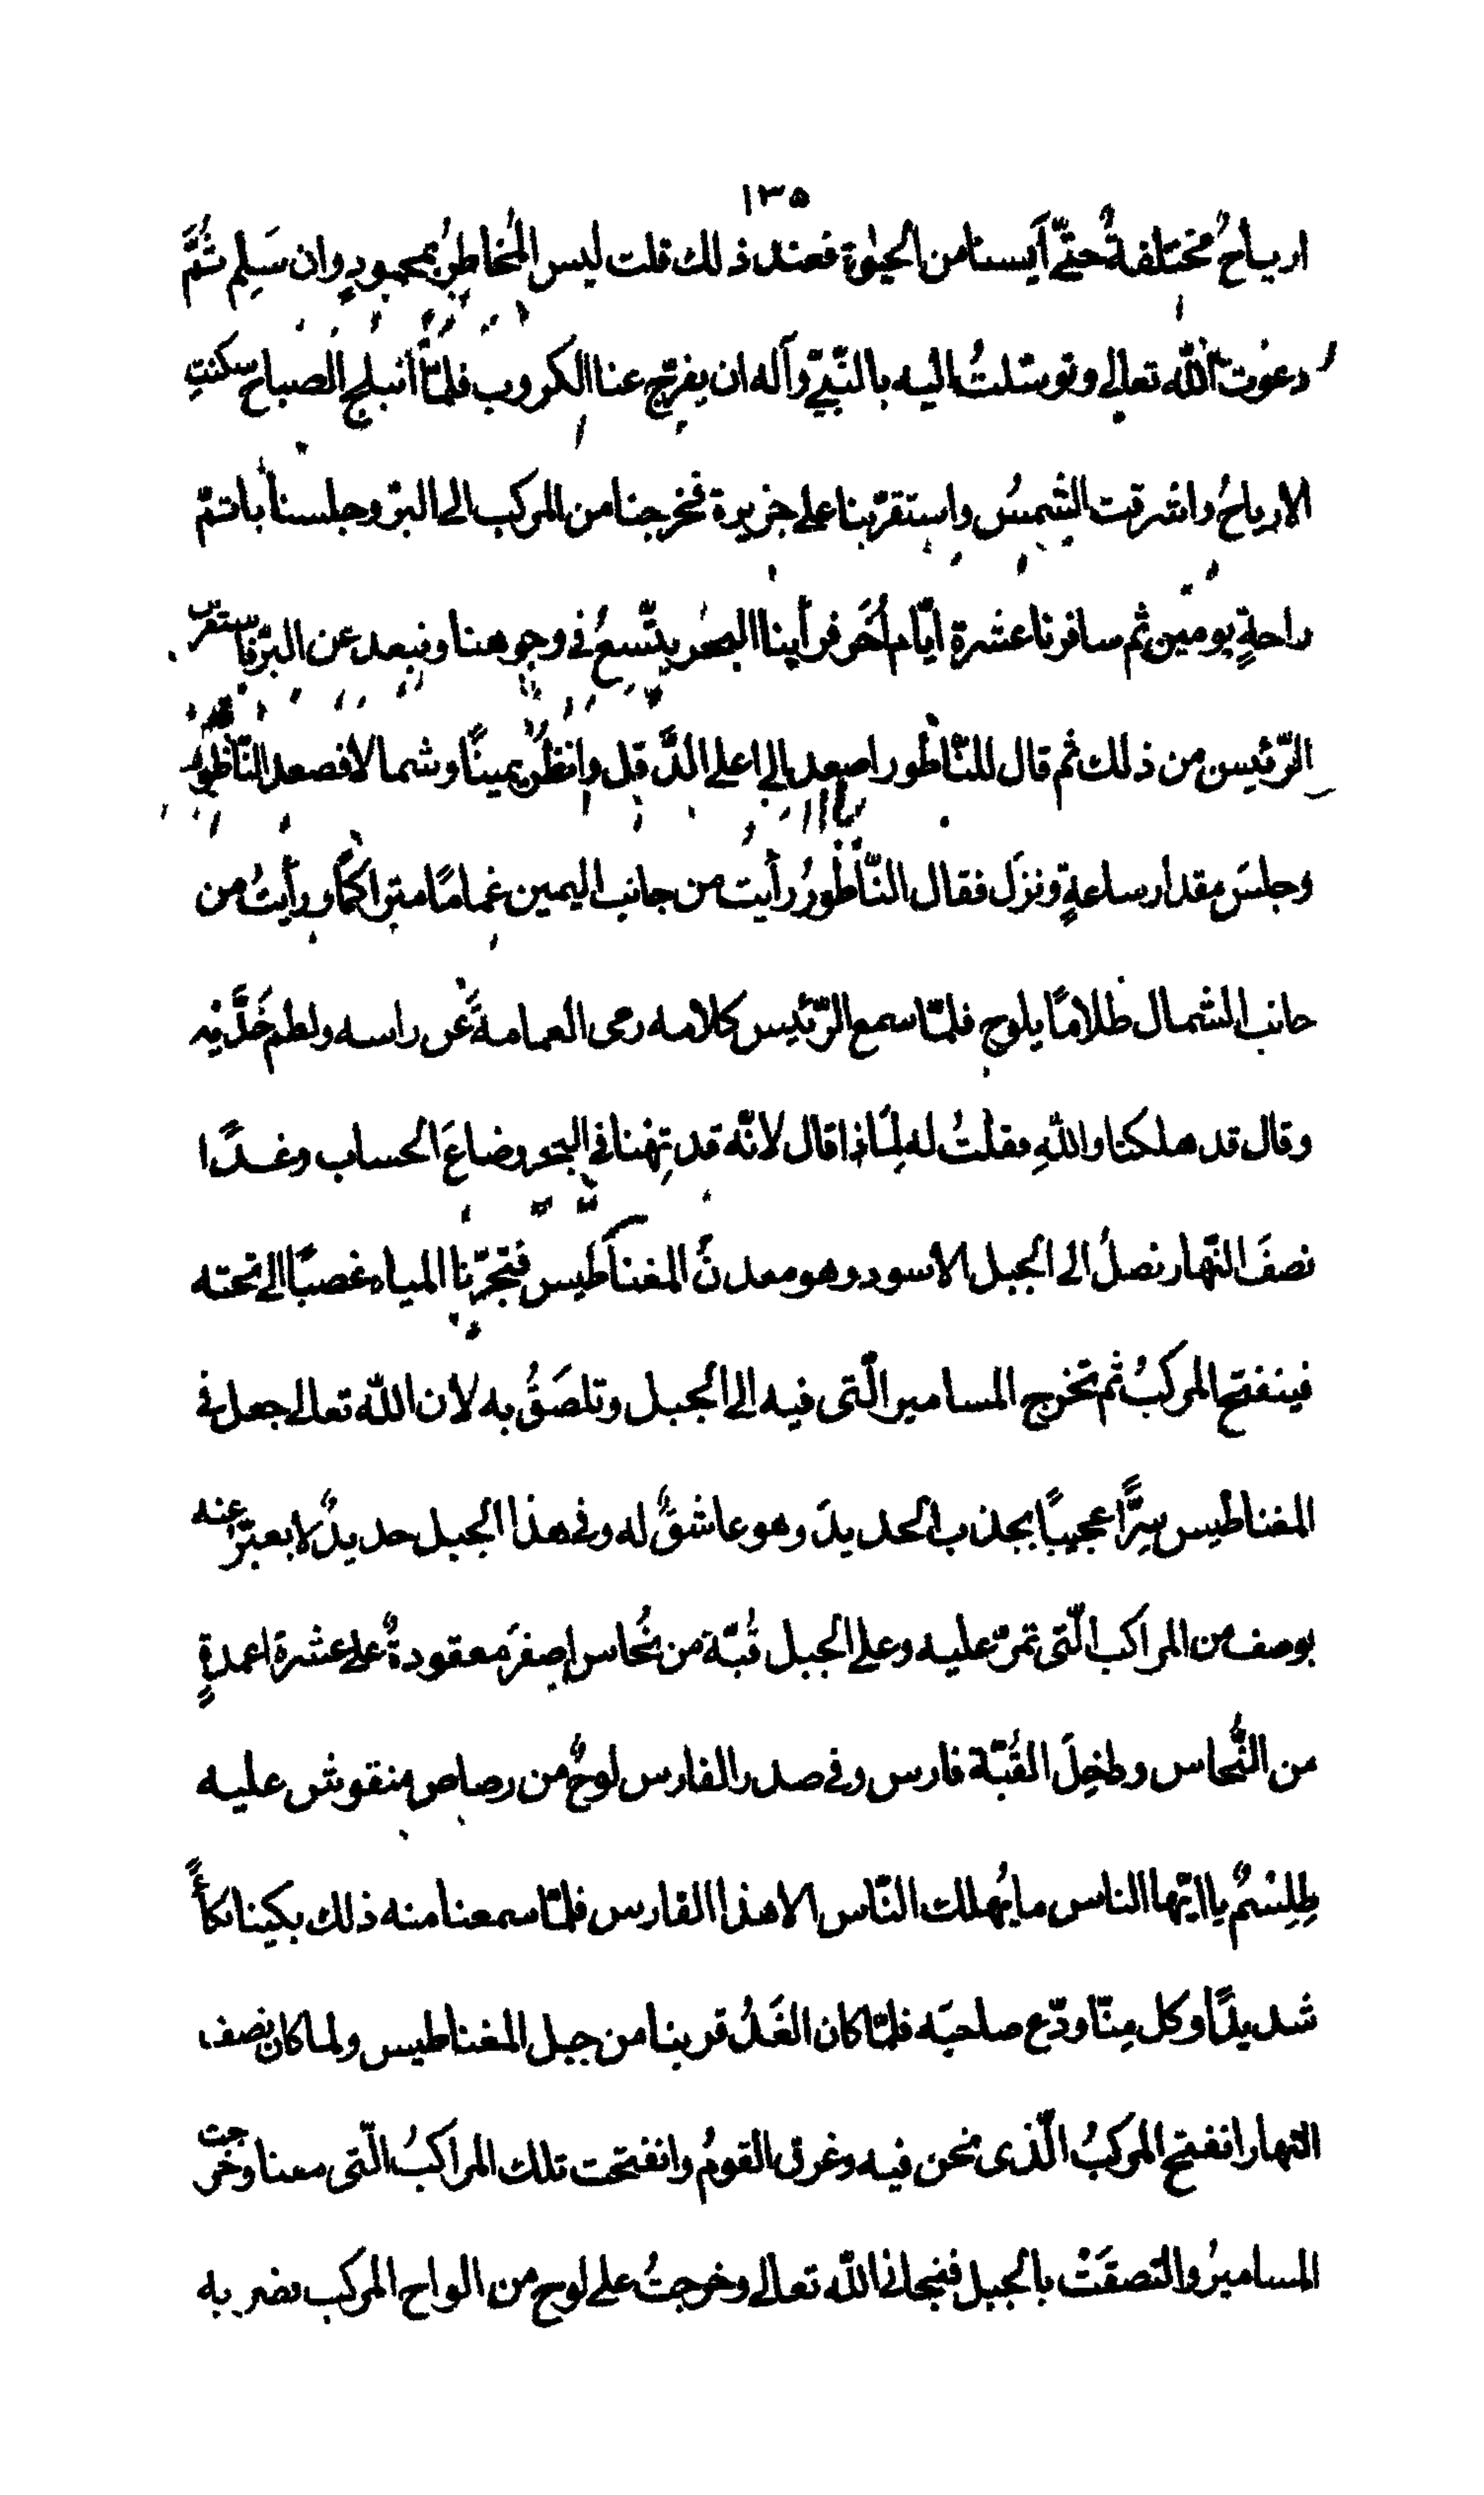 ١٣٥
ارياحٌ مختلفةٌ حتّى آيسنا من الحيٰوة فعند ذلك قلت ليس المُخاطِرُ بمحمودٍ وان سَلِم ثُمَّ
دعوت اللّٰه تعالى وتوسّلتُ اليه بالنّبىّ وآله ان يفرّج عنا الكروب فلمّا انبلج الصباح سكنتِ
الارياحُ واشرقت الشمسُ واستقرّ بنا على جزيرة فخرجنا من المركب الى البرّ وجلسنا باتمّ
راحةٍ يومين ثم سافرنا عشرة ايّام اُخَر فراينا البحر يتّسعُ فى وجوهنا ونبعد عن البرّ فاستقرّ
الرّئيس من ذلك ثم قال للنّاطور اصعد الى اعلى الدَّقَل وانظُر يمينًا وشمالا فصعد النّاطور
وجلسَ مقدار ساعةٍ ونزلَ فقال النّاطورُ رأيت من جانب اليمين غمامًا متراكمًا ورأيتُ من
جانب الشمال ظلامًا يلوح فلمّا سمع الرّئيس كلامه رمى العمامةَ عن راسه ولطم خَدَّيْه
وقال قد هلكنا واللّٰهِ فقلتُ له لِمَاذا قال لانّه قد تِهْنا فى البحر وضاعَ الحساب وغدًا
نصفَ النّهار نصلُ الى الجبل الاسود وهو معدنُ المغناطيس فتجرّنا المياه غصبًا الى تحته
فينفتح المركبُ ثم تخرج المسامير الّتى فيه الى الجبل وتلصَقُ به لان اللّٰه تعالى جعل فى
المغناطيس سِرًّا عجيبًا يجذب الحديدَ وهو عاشقٌ له وفى هذا الجبل حديدٌ لا يعبّر عنه
بوصف من المراكب الّتى تمرّ عليه وعلى الجبل قُبّة من نُحاس اصفرَ معقودةٌ على عشرة اعمدةٍ
من النُّحاس وداخِلَ القُبّة فارس وفى صدر الفارس لوحٌ من رصاص منقوش عليه
طِلِسْمٌ يا ايّها الناس ما يُهلك النّاس الا هذا الفارس فلمّا سمعنا منه ذلك بكينا بكاءً
شديدًا وكل مِنّا ودّع صاحبَه فلمّا كان الغَدُ قربنا من جبل المغناطيس ولما كان نصف
النهار انفتح المركبُ الّذى نحن فيه وغرق القومُ وانفتحت تلك المراكبُ الّتى معنا وخرجت
المساميرُ والتصقَتْ بالجبل فنجانى اللّٰه تعالى وخرجتُ على لوح من الواح المركب نضربه